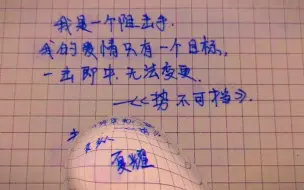 我是一个阻击手.
我的爱情只有一个目标,
一击即中.无法变更.
——《势不可挡》.
夏耀